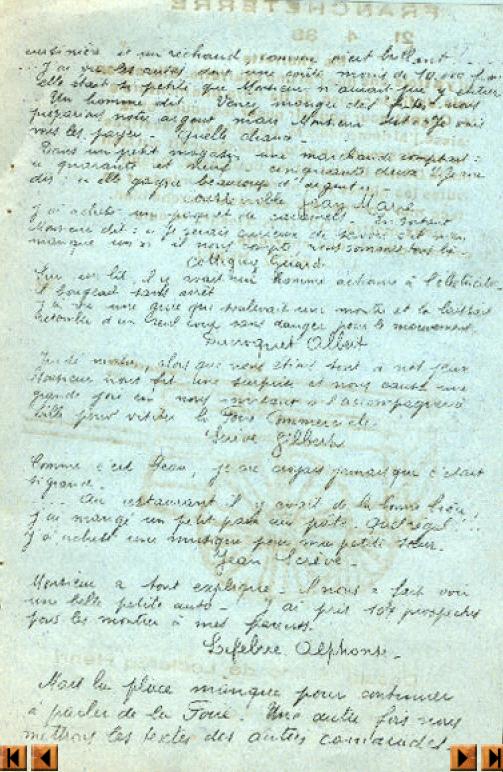 cuisinière et un réchaud comme c'est brillant.
J'ai vu les autos dont une coûte moins de 10.000 f.
elle était si petite que Monsieur n'aurait pu y entrer
Un homme dit Venez manger des frites nous
préparons notre argent mais Monsieur dit : Je vais
vous les payer - Quelle chance -
Dans un petit magasin une marchande comptait :
quarante et neuf cinquante deux
dis : elle gagne beaucoup d'argent -
Jean Marie
J'ai acheté un paquet de caramels - En sortant
Monsieur dit : Je serais curieux de savoir s'il m'en
manque un il nous compte nous sommes tous là
Colligny Gérard
Sur un lit, il y avait un homme actionné à l'électricité
il bougeait sans arrêt
J'ai vu une grue qui soulevait une montre et la laissait
retomber d'un seul coup sans danger pour le mouvement.
Durroquet Albert
Jeudi matin, alors que nous étions tous à nos jeux
Monsieur nous fit une surprise et nous causa une
grande joie en nous invitant à l'accompagner à
Lille pour visiter la Foire Commerciale
Scrève Gilbert
Comme c'est beau, je ne croyais jamais que c'était
si grand.
... Au restaurant il y avait de la bonne bière !
J'ai mangé un petit pain au pâté. Quel régal !
J'ai acheté une musique pour ma petite sœur.
Jean Scrève -
Monsieur a tout expliqué. Il nous a fait voir
une belle petite auto - J'ai pris 107 prospectus
pour les montrer à mes parents.
Lefebvre Alphonse -
Mais la place manque pour continuer
à parler de la Foire. Une autre fois nous
mettrons les textes des autres camarades